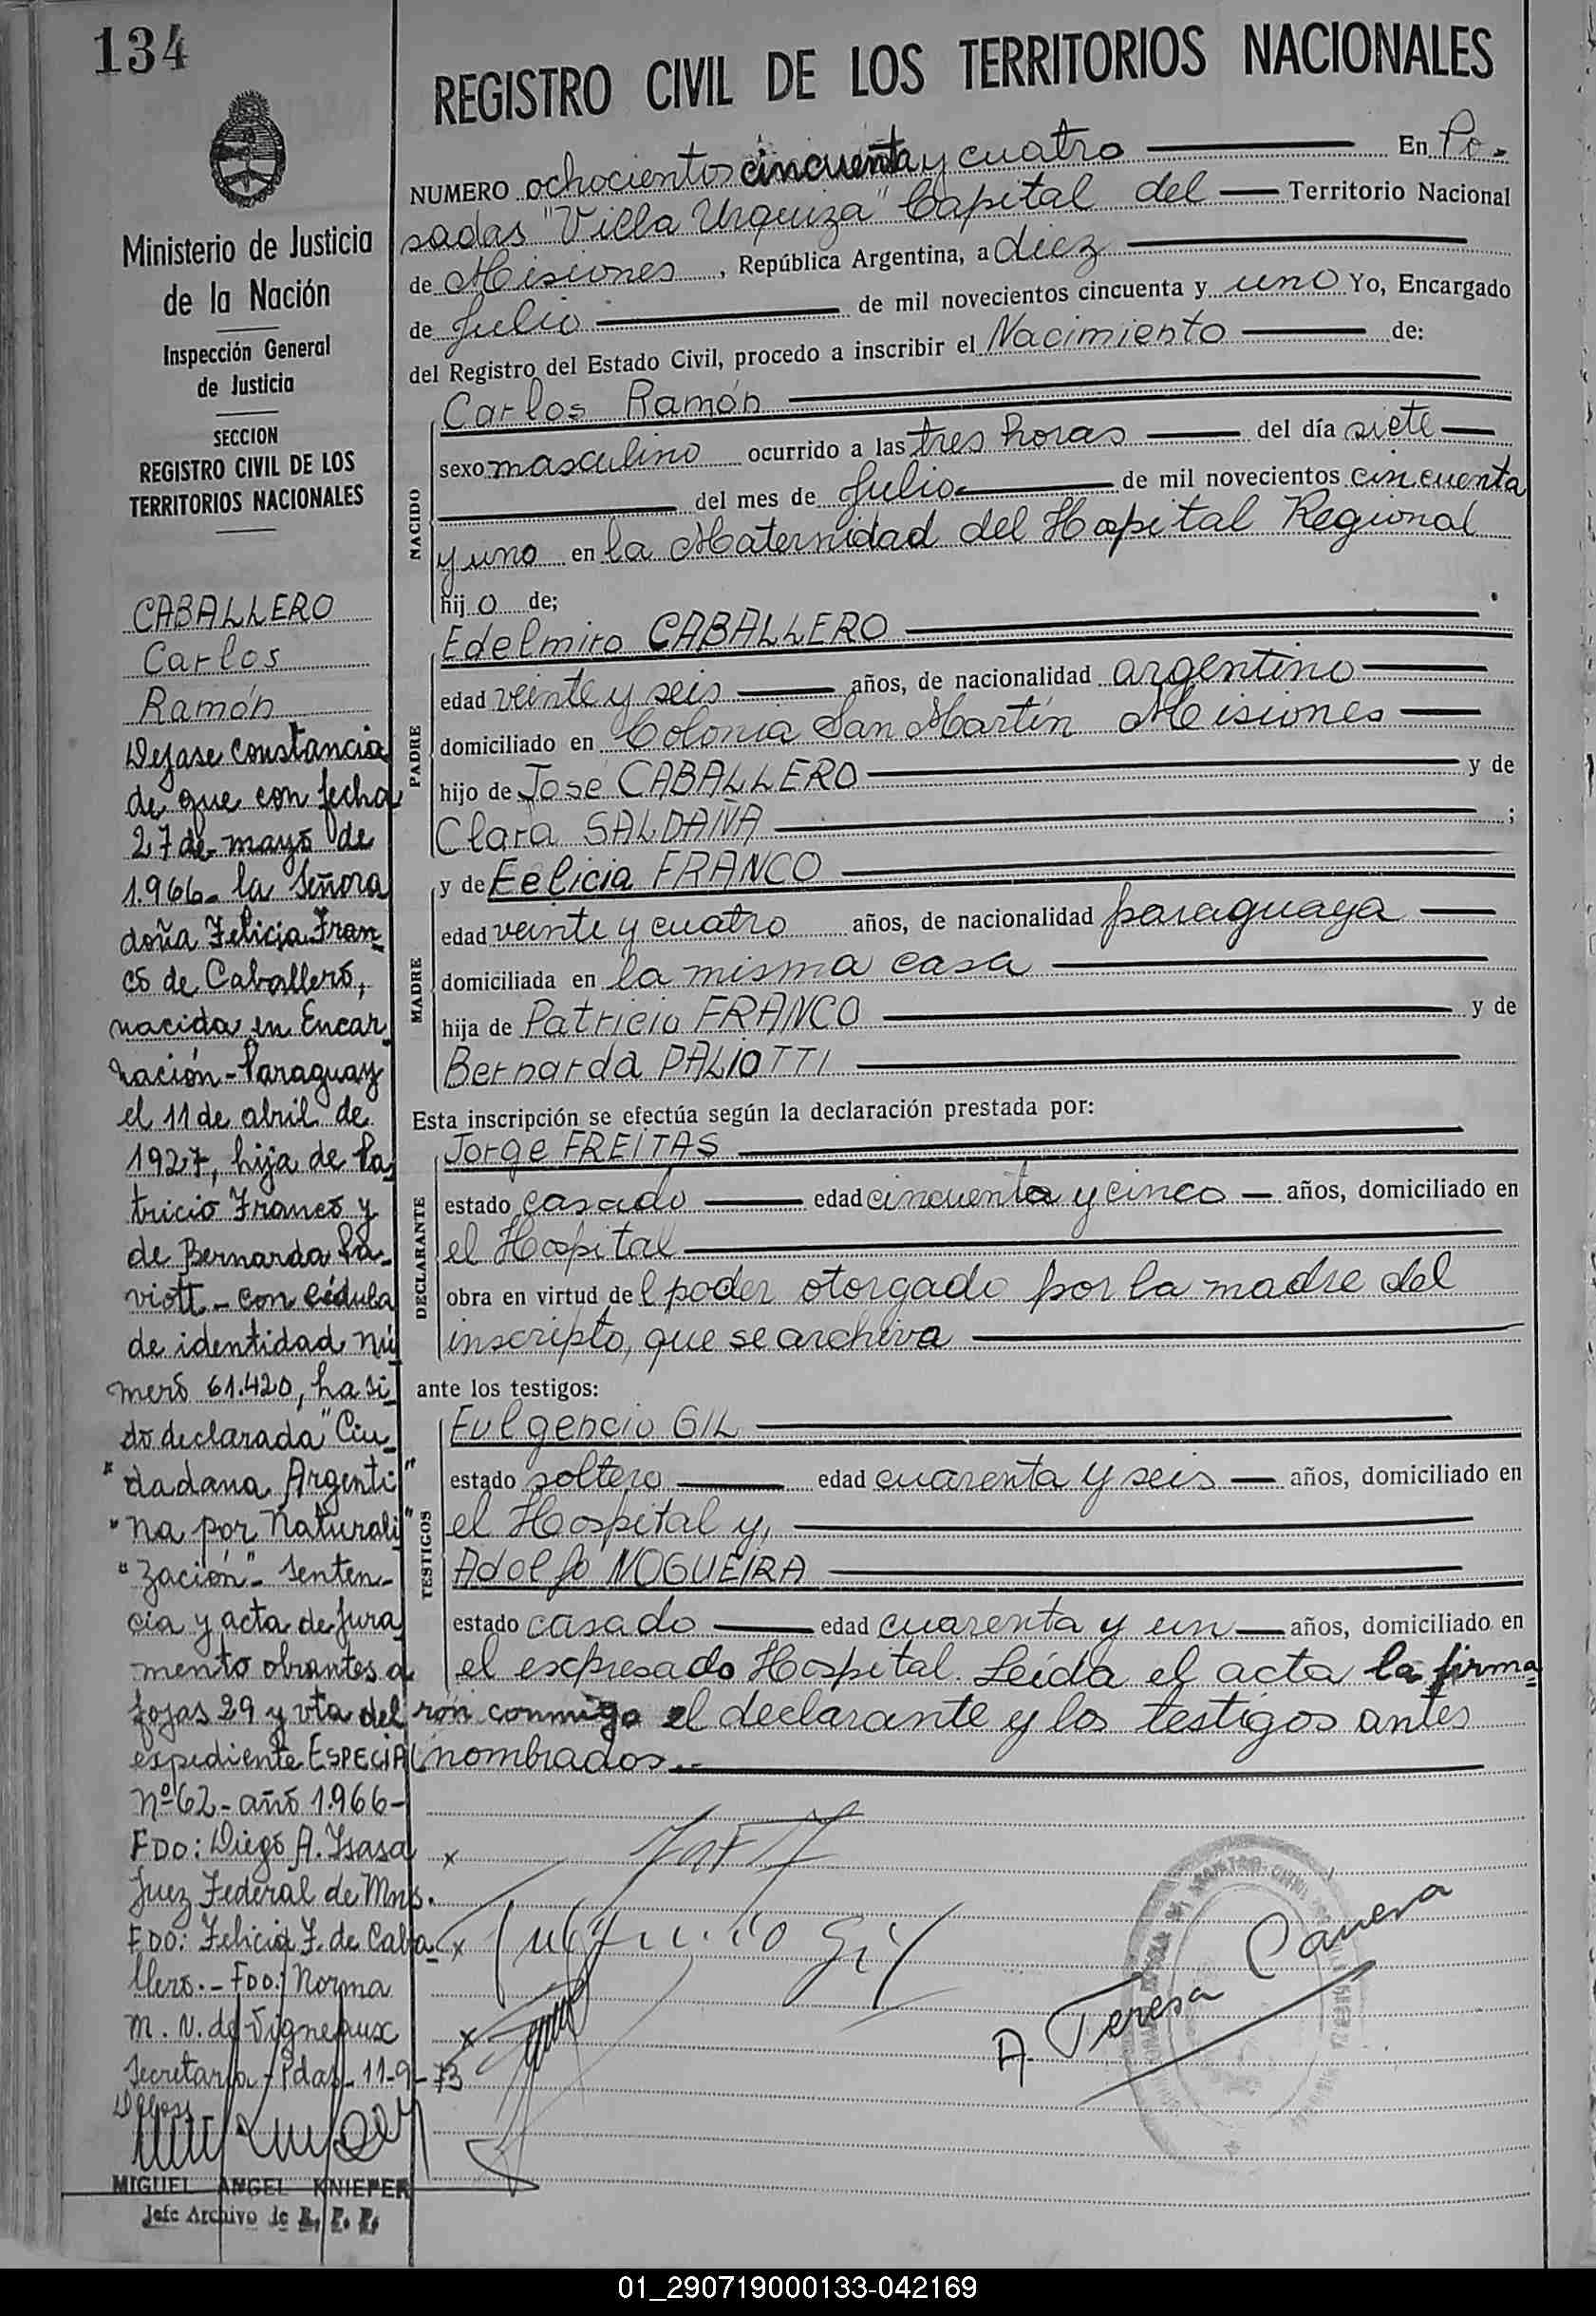 134
Ministerio de Justicia
de la Nación
Inspección General
de Justicia
SECCION
REGISTRO CIVIL DE LOS
TERRITORIOS NACIONALES
CABALLERO
Carlos
Ramón
Dejase constancia
de que con fecha
27 de mayo de
1.966- la señora
doña Felicia Fran-
co de Caballero,
nacida en Encar-
nación - Paraguay
el 11 de abril de
1927, hija de Pa-
tricio Franco y
de Bernarda Pa-
viott - con cédula
de identidad nú-
mero 61.420, ha si-
do declarada "Ciu-
"dadana Argenti"
"na por Naturali"
"zación"- senten-
cia y acta de jura-
mento obrantes a
fojas 29 y vta del
expediente ESPECIAL
Nº 62 - año 1.966-
FDO: Diego A. Isasa
Juez Federal de Mnes.
FDO: Felicia F. de Caba-
llero.- FDO: Norma
M. N. de Vigneaux
Secretaria - Pdas- 11-9-73
MIGUEL ANGEL KNIEPER
Jefe Archivo de R. P. P.
REGISTRO CIVIL DE LOS TERRITORIOS NACIONALES
NUMERO ochocientos cincuenta y cuatro En Po-
sadas "Villa Urquiza" Capital del Territorio Nacional
de Misiones, República Argentina, a diez
de Julio de mil novecientos cincuenta y uno Yo, Encargado
del Registro del Estado Civil, procedo a inscribir el Nacimiento de:
NACIDO
Carlos Ramón
sexo masculino ocurrido a las tres horas del día siete
del mes de Julio de mil novecientos cincuenta
y uno en la Maternidad del Hospital Regional
hijo de;
PADRE
Edelmiro CABALLERO
edad veinte y seis años, de nacionalidad argentino
domiciliado en Colonia San Martín Misiones
hijo de José CABALLERO y de
Clara SALDAÑA ;
MADRE
y de Felicia FRANCO
edad veinte y cuatro años, de nacionalidad paraguaya
domiciliada en la misma casa
hija de Patricio FRANCO y de
Bernarda PALIOTTI
Esta inscripción se efectúa según la declaración prestada por:
DECLARANTE
Jorge FREITAS
estado casado edad cincuenta y cinco años, domiciliado en
el Hospital
obra en virtud del poder otorgado por la madre del
inscripto, que se archiva
ante los testigos:
TESTIGOS
Fulgencio GIL
estado soltero edad cuarenta y seis años, domiciliado en
el Hospital y,
Adolfo NOGUEIRA
estado casado edad cuarenta y un años, domiciliado en
el expresado Hospital. Leída el acta la firma-
ron conmigo el declarante y los testigos antes
nombrados.-
x
x Fulgencio Gil
x
A. Teresa Canesa
01_290719000133-042169